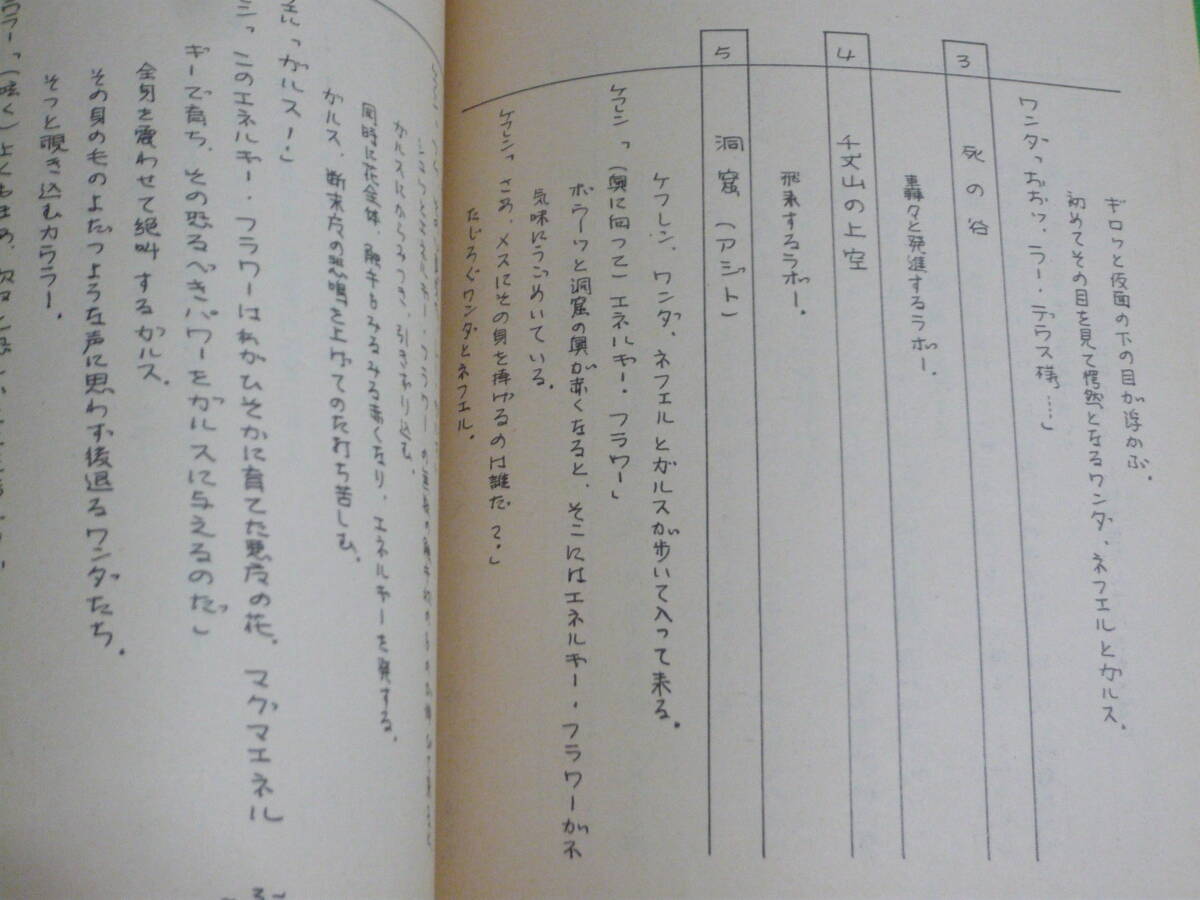 ギロッと仮面の下の目が浮かぶ。
初めてその目を見て愕然となるワンダ、ネフエルとガルス。
ワンダ「おおッ、ラー・デウス様……」
3 死の谷
轟々と発進するラボー。
4 千丈山の上空
飛来するラボー。
5 洞窟（アジト）
ケフレン、ワンダ、ネフエルとガルスが歩いて入って来る。
ケフレン「（奥に向って）エネルギー・フラワー」
ボウーッと洞窟の奥が赤くなると、そこにはエネルギー・フラワーが不
気味にうごめいている。
ケフレン「さあ、メスにその身を捧げるのは誰だ？」
たじろぐワンダとネフエル。
ガルスにからみつき、引きずり込む。
同時に花全体、触手もみるみる赤くなり、エネルギーを発する。
ガルス、断末魔の悲鳴を上げてのた打ち苦しむ。
「ガルス！」
このエネルギー・フラワーはわがひそかに育てた悪魔の花。マグマエネル
ギーで育ち、その恐るべきパワーをガルスに与えるのだ」
全身を震わせて絶叫するガルス。
その身のものよだつような声に思わず後退るワンダたち。
そっと覗き込むカウラー。